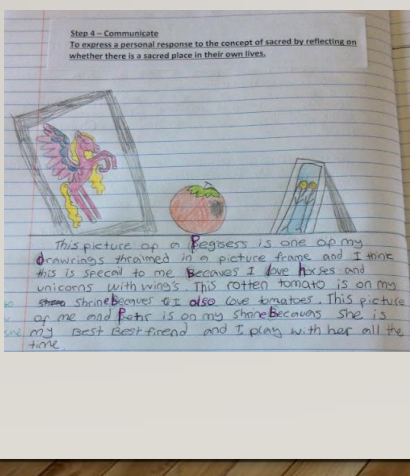 Step 4 – Communicate
To express a personal response to the concept of sacred by reflecting on
whether there is a sacred place in their own lives.
This picture of a Pegisers is one of my
drawrings thraimed in a picture frame and I think
this is specail to me Becaues I love horses and
unicorns with wing's. This rotten tomato is on my
shrine Becaues I also love tomatoes. This picture
of me and is on my shrine Becaues she is
my Best Best firend and I play with her all the
time.